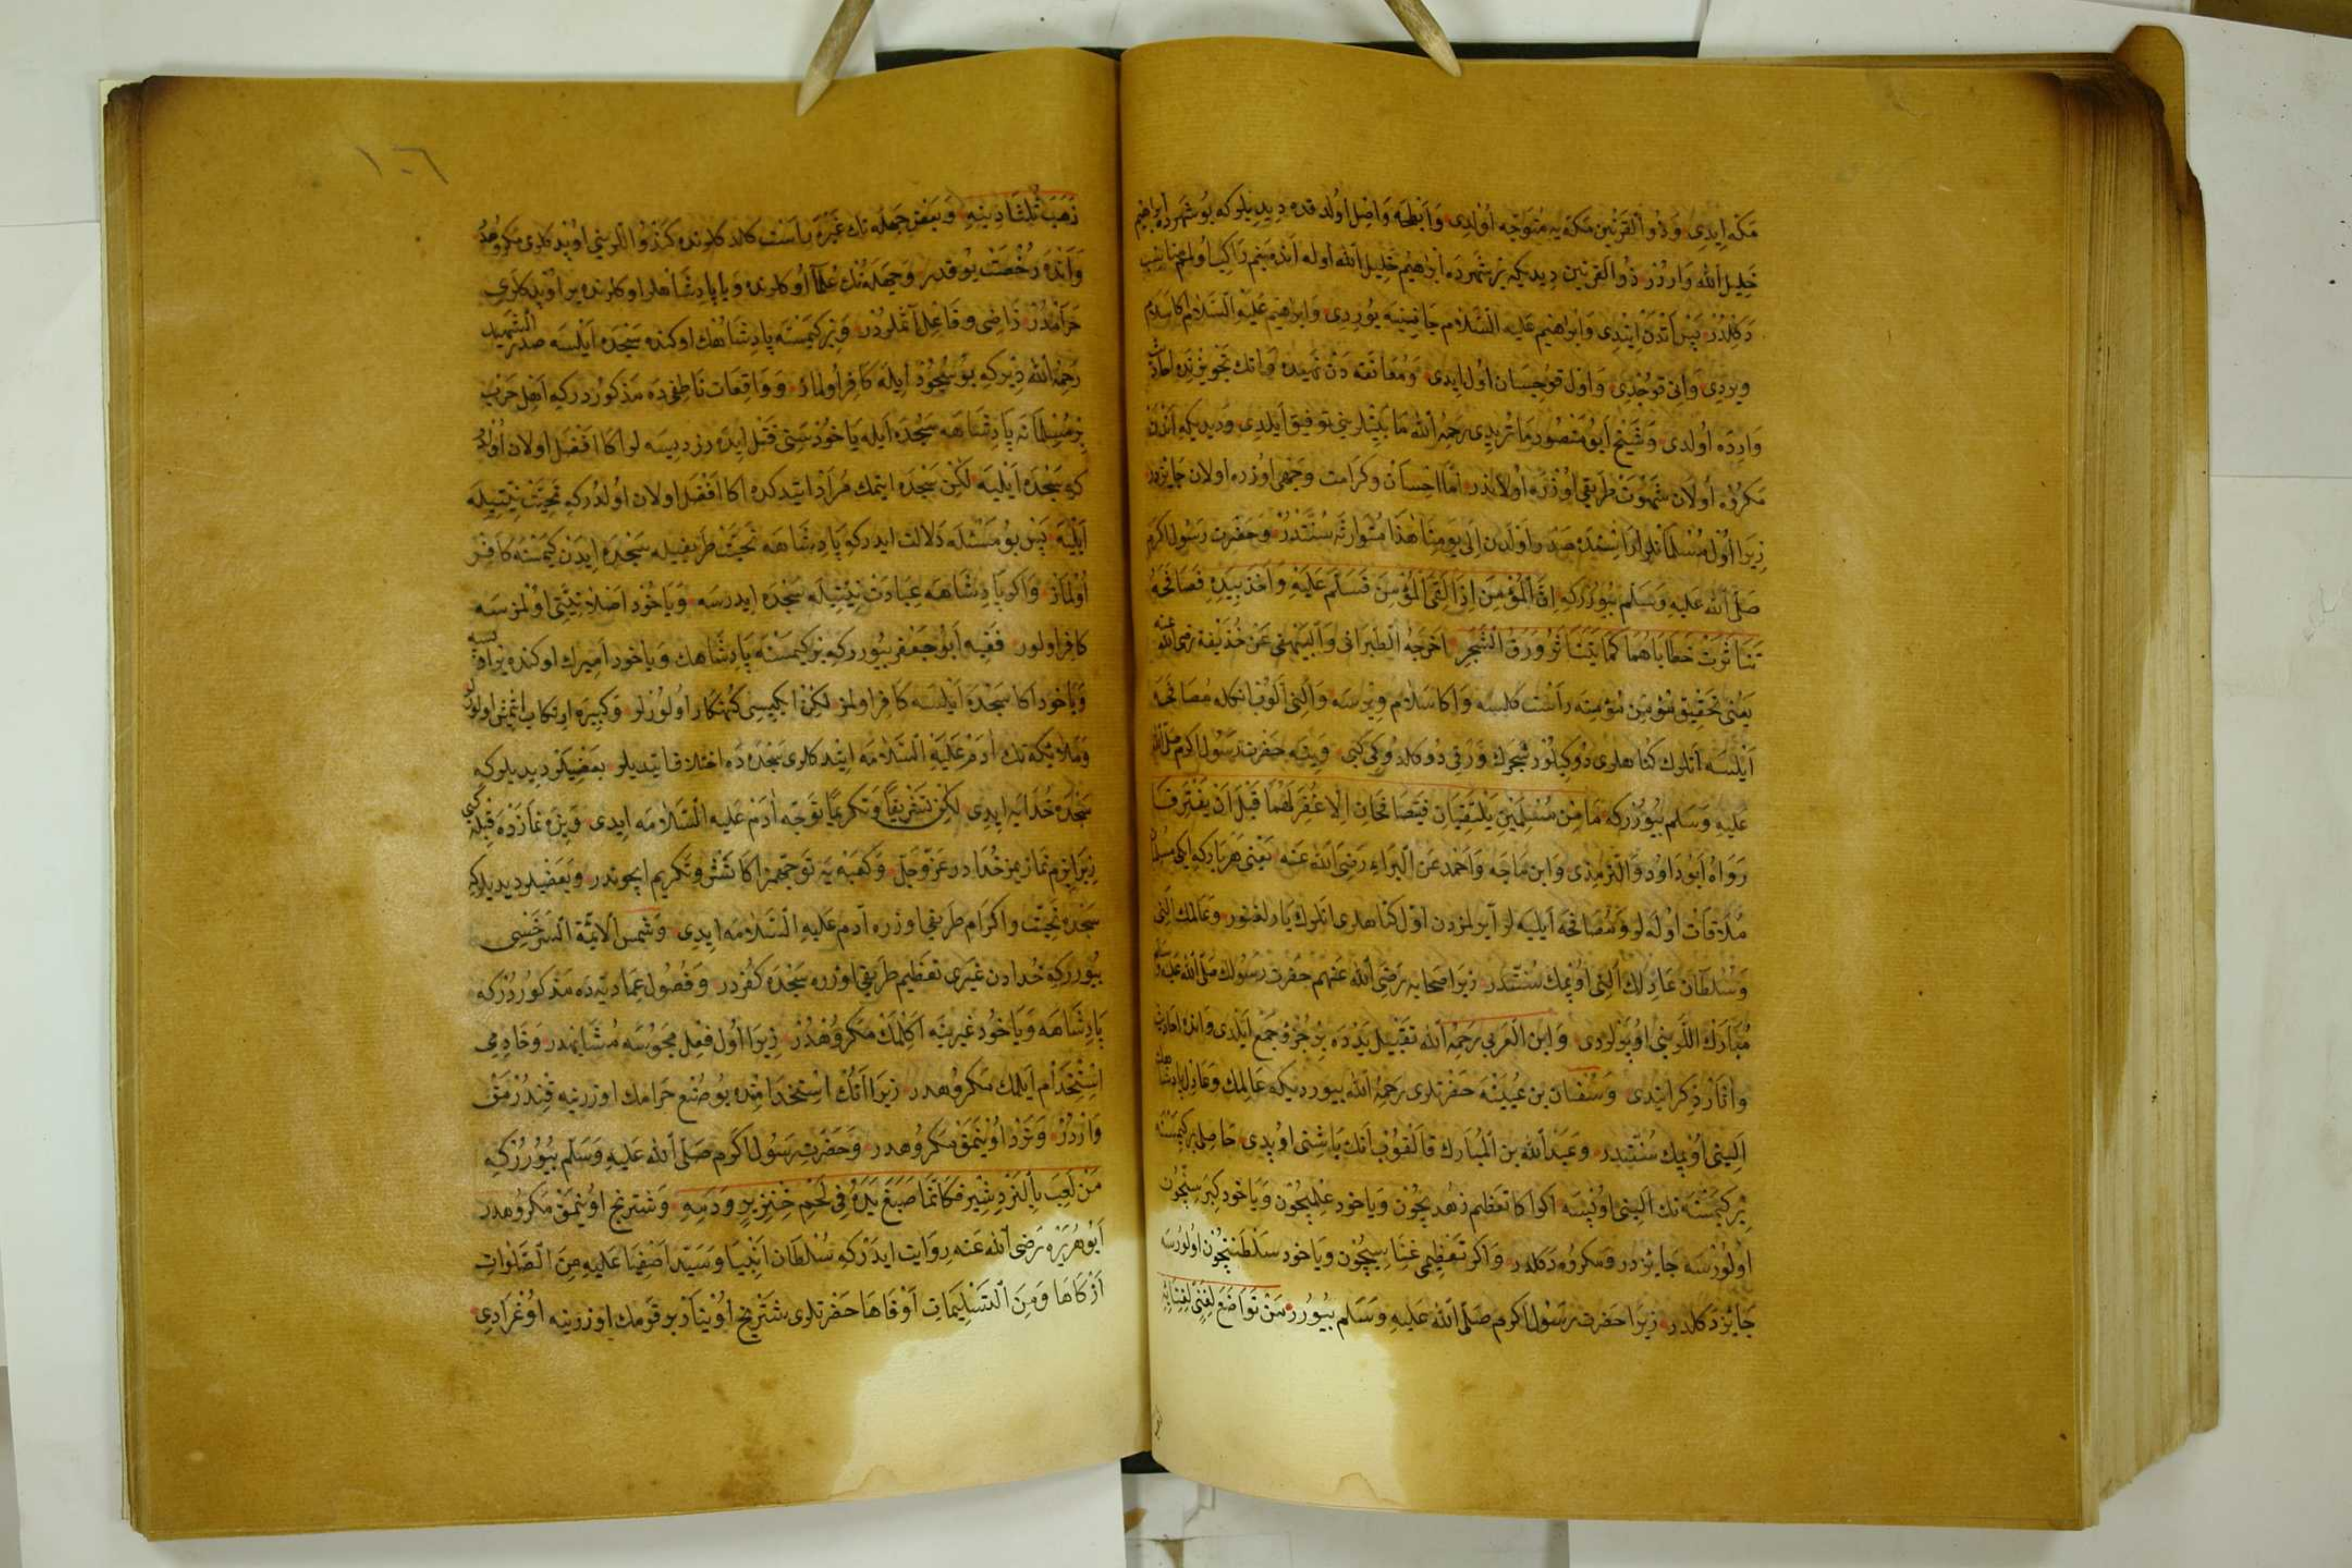 مكه ايدى وذو القرنين مكه يه متوجه اولدى وابطحه واصل اولدقده ديديلر كه بو شهرده ابراهيم
خليل الله واردر ذو القرنين ديديكه بر شهرده ابراهيم خليل الله اوله انده بنم راكب اولمغم مناسب
دكلدر پس اتدن ايندى وابراهيم عليه السلام جانبينه يوردى وابراهيم عليه السلام اكا سلام
ويردى وانى قوجدى واول قوجيسان اول ايدى ومعانقه دن نهيده وانك تجويزنده احاديث
وارده اولدى وشيخ ابو منصور ماتريدى رحمه الله ما بينلرينى توفيق ايلدى وديديكه اندن
مكروه اولان شهوت طريقى اوزره اولاندر اما احسان وكرامت وجهى اوزره اولان جايزدر
زيرا اول مسلمانلر اراسنده صدر اولدن الى يومنا هذا متوارثه سنتدر وحضرت رسول اكرم
صلى الله عليه وسلم بيوررك ان المؤمن اذا لقى المؤمن فسلم عليه واخذ بيده فصافحه
تناثرت خطاياهما كما يتناثر ورق الشجر اخرجه الطبرانى والبيهقى عن حذيفة رضى الله عنه
يعنى تحقيق مؤمن مؤمنه راست كلسه واكا سلام ويرسه والنى الوب انكله مصافحه
ايلسه انلرك كناهلرى دوكيلور شجرك ورقى دوكلدوكى كبى وفيه حضرت رسول اكرم صلى الله
عليه وسلم بيوررکه ما من مسلمين يلتقيان فيتصافحان الا غفر لهما قبل ان يفترقا
رواه ابو داود والترمذى وابن ماجه واحمد عن البراء رضى الله عنه يعنى هر بار كه ايكى مسلمان
ملاقات اوله لر ومصافحه ايليه لر آيرلمزدن اول كناهلرى انلرك يارلغنور وعالمك النى
وسلطان عادلك النى اوپمك سنتدر زيرا صحابه رضى الله عنهم حضرت رسولك صلى الله عليه وسلم
مبارك اللرينى اوپرلردى وابن العربى رحمه الله تقبيل يدده بر جزؤ جمع ايلدى وانده احاديث
واثار ذكر ايتدى وسفيان بن عيينه حضرتلرى رحمه الله بيورديكه عالمك وعادل پادشاهك
الينى اوپمك سنتدر وعبد الله بن المبارك قالقوب انك باشنى اوپدى حاصل بر كيمسنه
بر كيمسنه نك الينى اوپسه اكر اكا تعظيم زهديچون وياخود علميچون وياخود كبر سنيچون
اولورسه جايزدر ومكروه دكلدر واكر تعظيمى غناسيچون وياخود سلطنتيچون اولورسه
جايز دكلدر زيرا حضرت رسول اكرم صلى الله عليه وسلم بيورر من تواضع لغنى لغنائه
١٠٦
ذهب ثلثا دينه وبعض جهله نك غيره راست كلدكلرنده كندو اللرينى اوپدكلرى مكروهدر
وانده رخصت يوقدر وجهله نك علما اوكلرنده ويا پادشاهلر اوكلرنده ير اوپدكلرى
حرامدر راضى وفاعل آثملردر وبر كيمسنه پادشاهك اوكنده سجده ايلسه صدر الشهيد
رحمه الله ديركه بو سجود ايله كافر اولماز وواقعات ناطفى ده مذكوردركه اهل حرب
بر مسلمانه پادشاهه سجده ايله ياخود سنى قتل ايده رز ديسه لر اكا افضل اولان اولدر
كه سجده ايليه لكن سجده ايتمك مراد ايتدكده اكا افضل اولان اولدركه تحيت نيتيله
ايليه پس بو مسئله دلالت ايدركه پادشاهه تحيت طريقيله سجده ايدن كيمسنه كافر
اولماز واكر پادشاهه عبادت نيتيله سجده ايدرسه وياخود اصلا نيتى اولمزسه
كافر اولور فقيه ابو جعفر بيورركه بر كيمسنه پادشاهك وياخود اميرك اوكنده ير اوپسه
وياخود اكا سجده ايلسه كافر اولمز لكن ايكيسى كنهكار اولورلر وكبيره ارتكاب ايتمش اولور
وملائكه نك آدم عليه السلامه ايتدكلرى سجده ده اختلاف ايتديلر بعضيلر ديديلركه
سجده خدايه ايدى لكن تشريفا وتكريما توجه آدم عليه السلامه ايدى وبزه نمازده قبله كبى
زيرا بزم نمازيمز خدادر عز وجل وكعبه يه توجهمز اكا تشريف وتكريم ايچوندر وبعضيلر ديديلركه
سجده تحيت واكرام طريقى اوزره آدم عليه السلامه ايدى وشمس الائمة السرخسى
بيورركه خدادن غيرى تعظيم طريقى اوزره سجده كفردر وفصول عماديه ده مذكوردركه
پادشاهه وياخود غيرينه اكلمك مكروهدر زيرا اول فعل مجوسه مشابهدر وخادمى
استخدام ايلمك مكروهدر زيرا آنك استخدامنده بو صنع حرامك اوزرينه قندرمق
واردر ونرد اوينمق مكروهدر وحضرت رسول اكرم صلى الله عليه وسلم بيوررکه
من لعب بالنردشير فكانما صبغ يده فى لحم خنزير ودمه وشترنج اوينمق مكروهدر
ابو هريره رضى الله عنه روايت ايدركه سلطان انبيا وسيد اصفيا عليه من الصلوات
ازكاها ومن التسليمات اوفاها حضرتلرى شترنج اوينار بر قومك اوزرينه اوغرادى